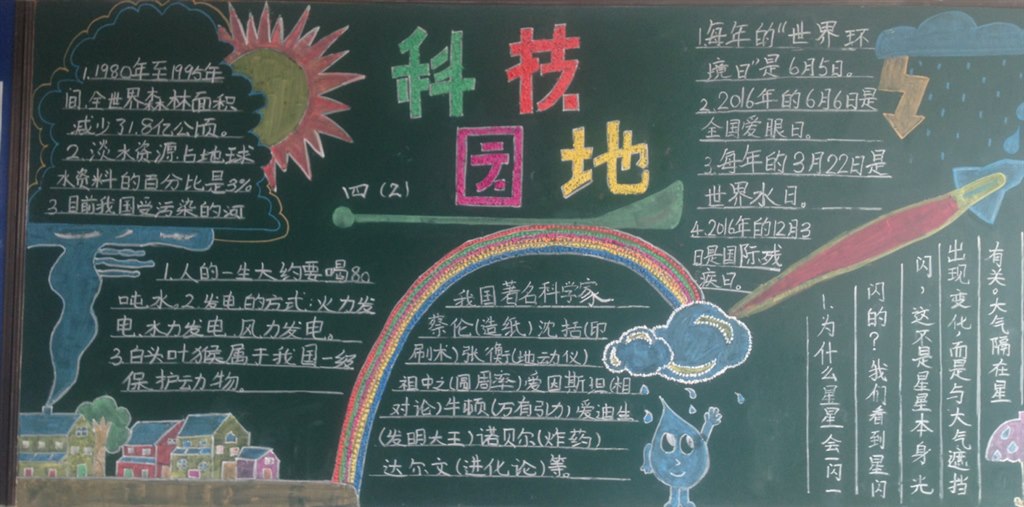 科技
园地
四(2)
1.1980年至1995年
间,全世界森林面积
减少了1.8亿公顷。
2.淡水资源占地球
水资料的百分比是3%
3.目前我国受污染的河
1.人的一生大约要喝80
吨水。2.发电的方式:火力发
电.水力发电.风力发电。
3.白头叶猴属于我国一级
保护动物。
我国著名科学家
蔡伦(造纸)沈括(印
刷术)张衡(地动仪)
祖冲之(圆周率)爱因斯坦(相
对论)牛顿(万有引力)爱迪生
(发明大王)诺贝尔(炸药)
达尔文(进化论)等。
1.每年的“世界环
境日”是6月5日。
2.2016年的6月6日是
全国爱眼日。
3.每年的3月22日是
世界水日。
4.2016年的12月3
日是国际残
疾日。
1、为什么星星会一闪一
闪的?我们看到星闪
闪,这不是星星本身光
出现变化,而是与大气遮挡
有关。大气隔在星